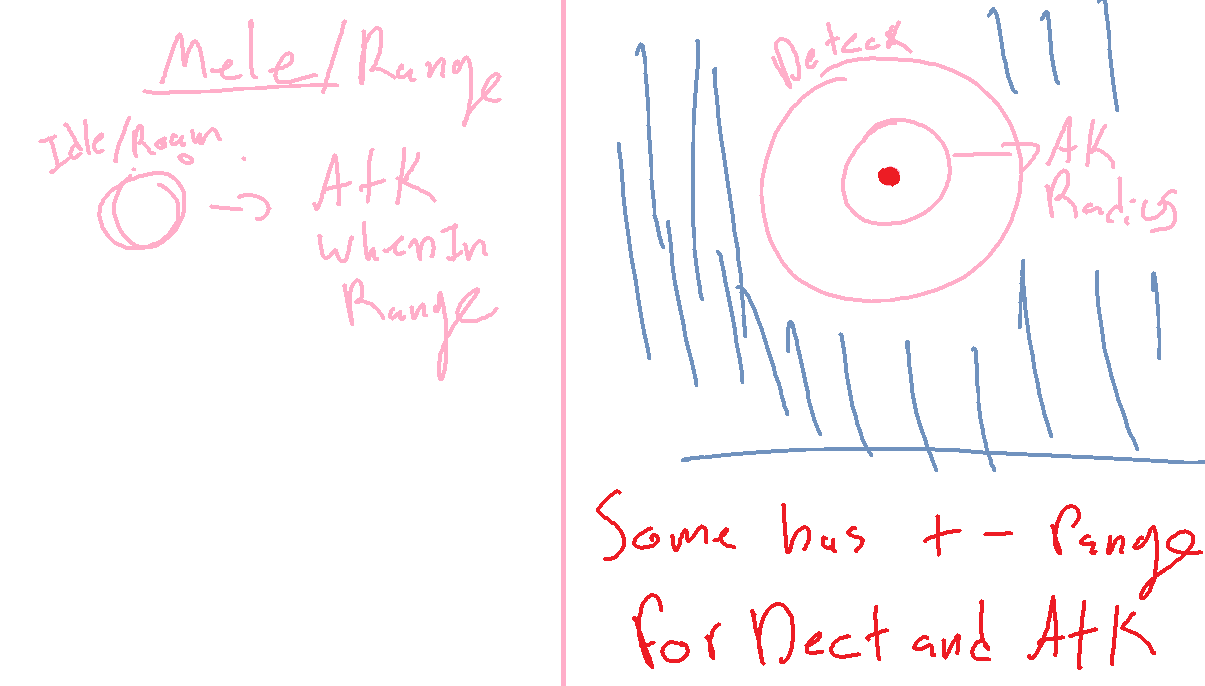 Mele/Range
Idle/Roam
AtK
when In
Range
Deteck
AK
Radius
Some has + - Range
for Dect and AtK